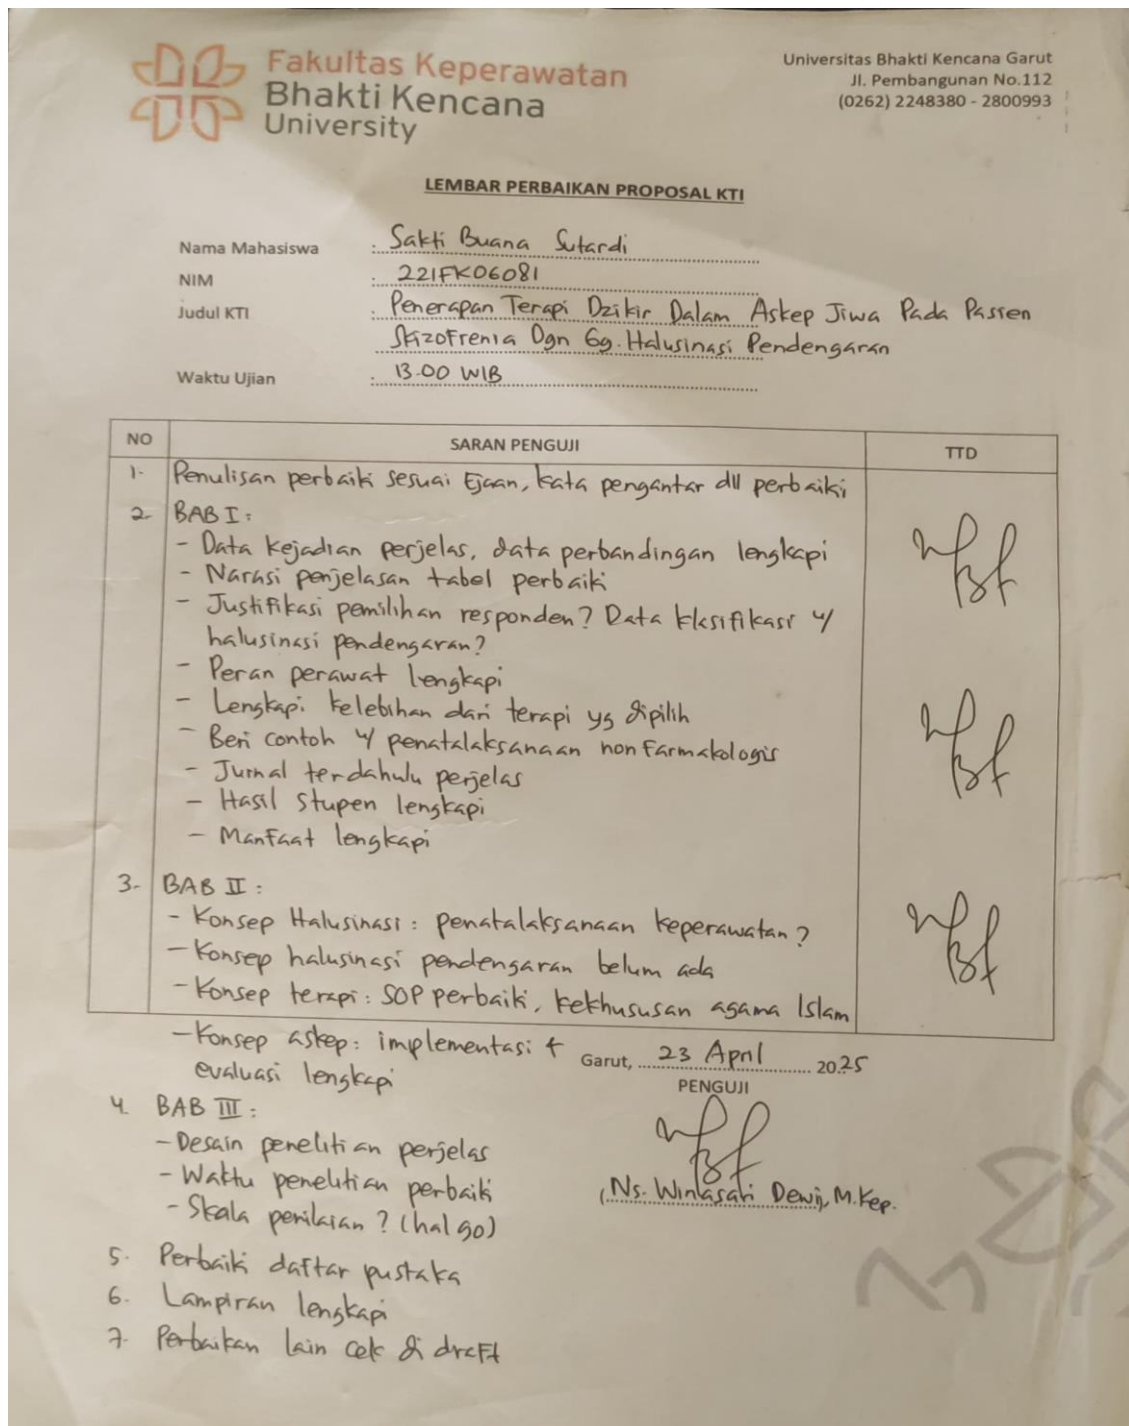 Fakultas Keperawatan
Bhakti Kencana
University
Universitas Bhakti Kencana Garut
Jl. Pembangunan No.112
(0262) 2248380 - 2800993
LEMBAR PERBAIKAN PROPOSAL KTI
Nama Mahasiswa : Sakti Buana Sutardi
NIM : 221FK06081
Judul KTI : Penerapan Terapi Dzikir Dalam Askep Jiwa Pada Pasien
Skizofrenia Dgn Gg. Halusinasi Pendengaran
Waktu Ujian : 13.00 WIB
NO SARAN PENGUJI TTD
1. Penulisan perbaiki sesuai Ejaan, kata pengantar dll perbaiki
2. BAB I :
- Data kejadian perjelas, data perbandingan lengkapi
- Narasi penjelasan tabel perbaiki
- Justifikasi pemilihan responden? Data klasifikasi u/
halusinasi pendengaran?
- Peran perawat lengkapi
- Lengkapi kelebihan dari terapi yg dipilih
- Beri contoh u/ penatalaksanaan non farmakologis
- Jurnal terdahulu perjelas
- Hasil stupen lengkapi
- Manfaat lengkapi
3. BAB II :
- Konsep Halusinasi : penatalaksanaan keperawatan?
- Konsep halusinasi pendengaran belum ada
- Konsep terapi : SOP perbaiki, kekhususan agama Islam
- Konsep askep : implementasi +
evaluasi lengkapi
Garut, 23 April 2025
PENGUJI
4. BAB III :
- Desain penelitian perjelas
- Waktu penelitian perbaiki
- Skala penilaian ? (hal 90)
(Ns. Winasari Dewi, M.Kep.
5. Perbaiki daftar pustaka
6. Lampiran lengkapi
7. Perbaikan lain cek di draft